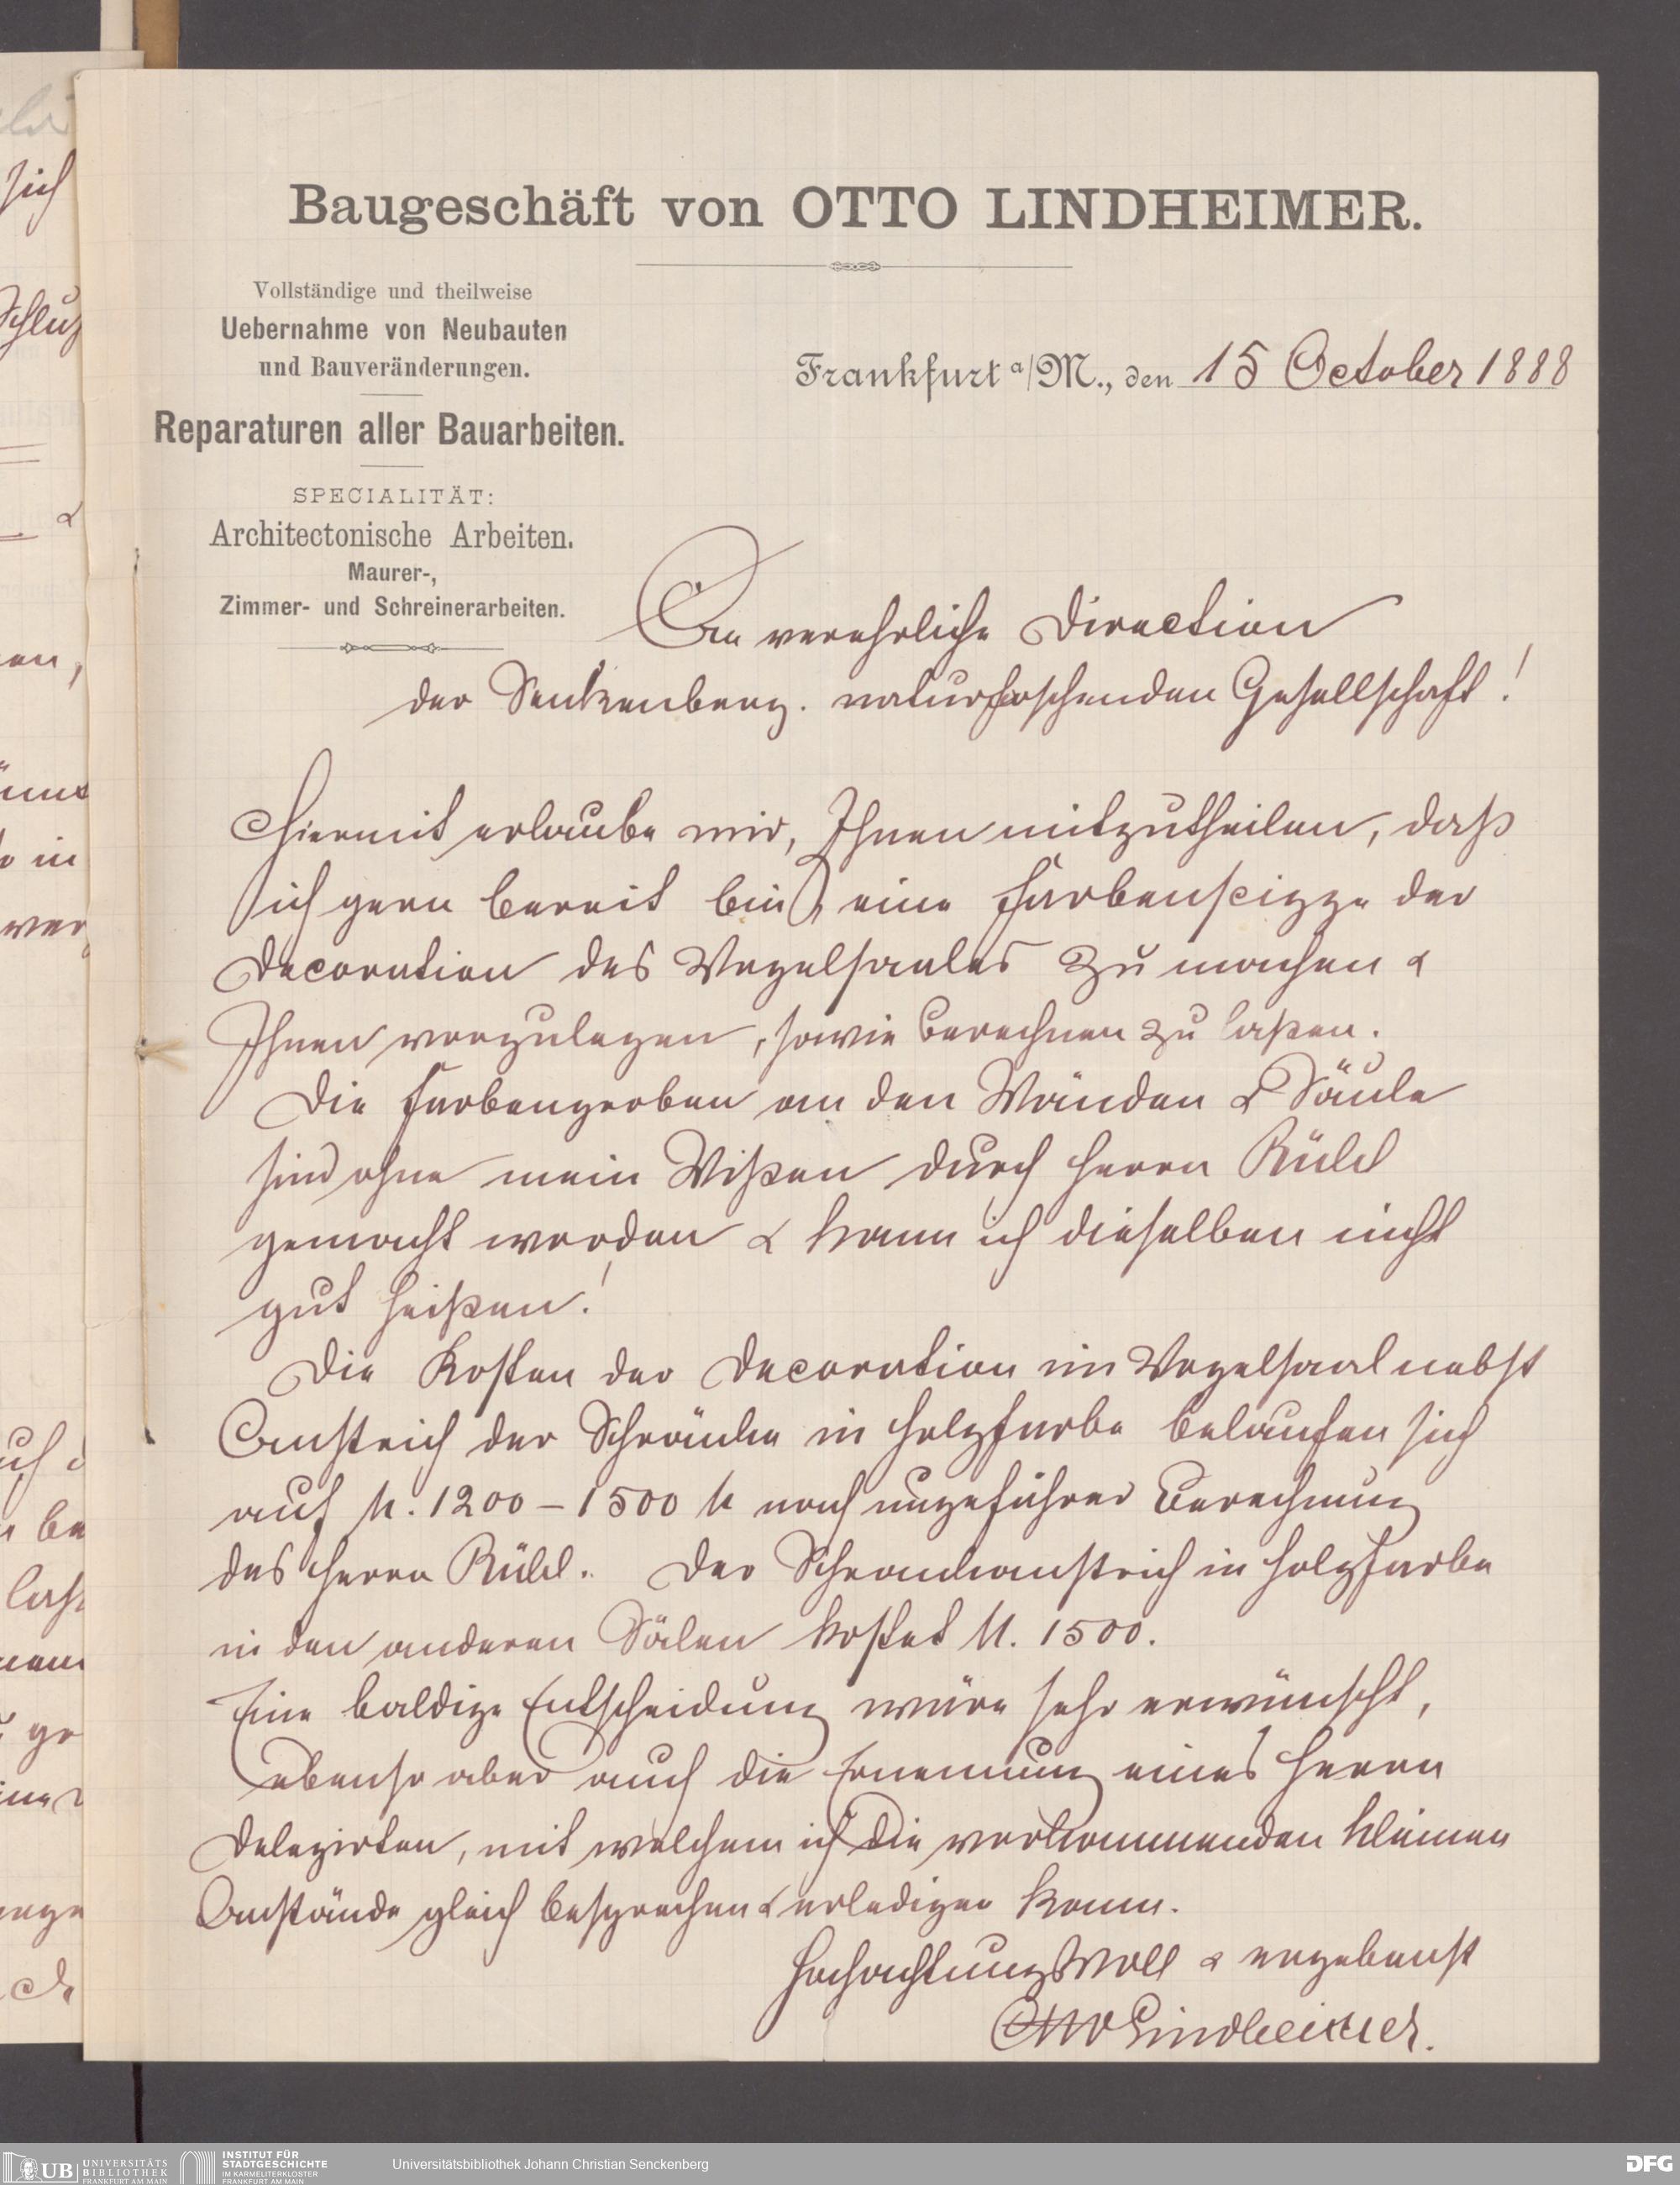 Baugeschäft von OTTO LINDHEIMER.
Vollständige und theilweise
Uebernahme von Neubauten
und Bauveränderungen.
Reparaturen aller Bauarbeiten.
SPECIALITÄT:
Architectonische Arbeiten.
Maurer-,
Zimmer- und Schreinerarbeiten.
Frankfurt a/M., den 15 October 1888
An verehrliche Direction
der Senkenberg. naturforschenden Gesellschaft!
Hiermit erlaube mir, Ihnen mitzutheilen, daß
ich gern bereit bin, eine Farbenskizze der
Decoration des Vogelsaales zu machen &
Ihnen vorzulegen, sowie berechnen zu laßen.
Die Farbenproben an den Wänden & Säule
sind ohne mein Wißen durch Herrn Rühl
gemacht worden & kann ich dieselben nicht
gut heißen!
Die Kosten der Decoration im Vogelsaal nebst
Anstrich der Schränke in Holzfarbe belaufen sich
auf M. 1200 – 1500 M nach ungefährer Berechnung
des Herrn Rühl. Der Schrankanstrich in Holzfarbe
in den anderen Sälen kostet M. 1500.
Eine baldige Entscheidung wäre sehr erwünscht,
ebenso aber auch die Ernennung eines Herrn
Delegirten, mit welchem ich die vorkommenden kleinen
Anstände gleich besprechen & erledigen kann.
Hochachtungsvoll & ergebenst
Otto Lindheimer.
UB
UNIVERSITÄTS
BIBLIOTHEK
FRANKFURT AM MAIN
INSTITUT FÜR
STADTGESCHICHTE
IM KARMELITERKLOSTER
FRANKFURT AM MAIN
Universitätsbibliothek Johann Christian Senckenberg
DFG